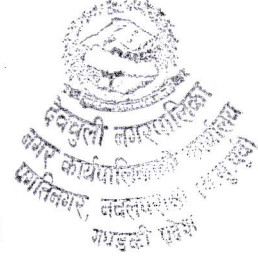 देवचुली नगरपालिका
नगर कार्यपालिकाको कार्यालय
प्रगतिनगर, नवलपरासी
गण्डकी प्रदेश